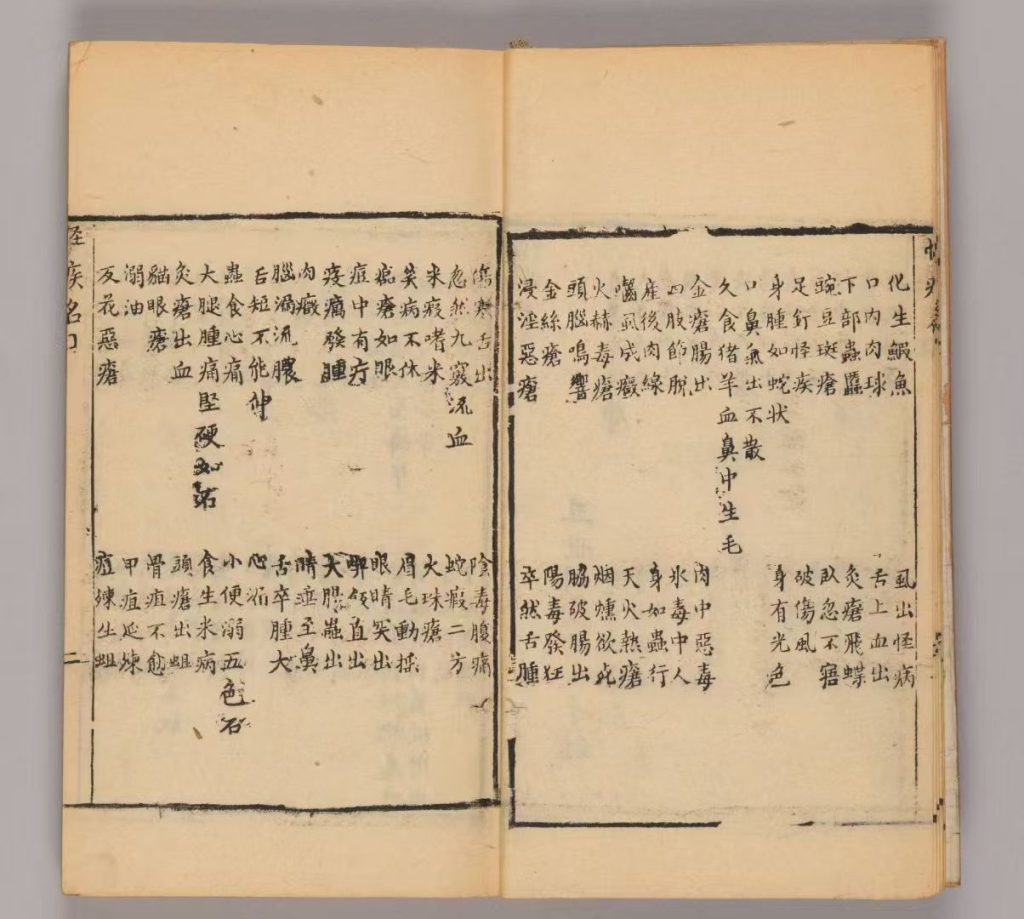 化生蝦魚 虱出怪病
口内肉球 舌上血出
下部蟲䘌 灸瘡飛蝶
豌豆斑瘡 臥忽不寤
足釘怪疾 破傷風
身腫如蛇状 身有光色
口鼻氣出不散
久食猪羊血鼻中生毛
金瘡腸出 肉中惡毒
四肢節脫 氷毒中人
産後肉線 身如蟲行
嚙虱成癥 天火熱瘡
火赫毒瘡 烟燻欲死
頭腦鳴響 脇破腸出
金絲瘡 陽毒發狂
浸淫惡瘡 卒然舌腫
傷寒舌出 陰毒腹痛
忽然九竅流血 蛇瘕二方
米瘕嗜米 火珠瘡
笑病不休 眉毛動揺
瘡如眼 眼睛突出
痘中有疔 直出
疫癘發腫 大腸蟲出
肉癥 睛垂至鼻
腦漏流膿 舌卒腫大
舌短不能伸 心漏
蟲食心痛 小便溺五色石
大腿腫痛堅硬如 食生米病
灸瘡出血 頭瘡出蛆
貓眼瘡 骨疽不愈
溺油 甲疽延爛
反花惡瘡 痘爛生蛆
怪疾名 二